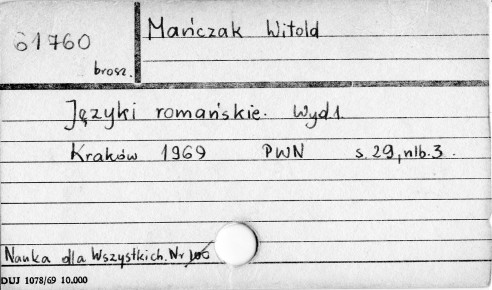 61760
Mańczak Witold
brosz.
Języki romańskie. Wyd1.
Kraków 1969 PWN s.29, nlb.3.
Nauka dla Wszystkich. Nr 106
DUJ 1078/69 10.000